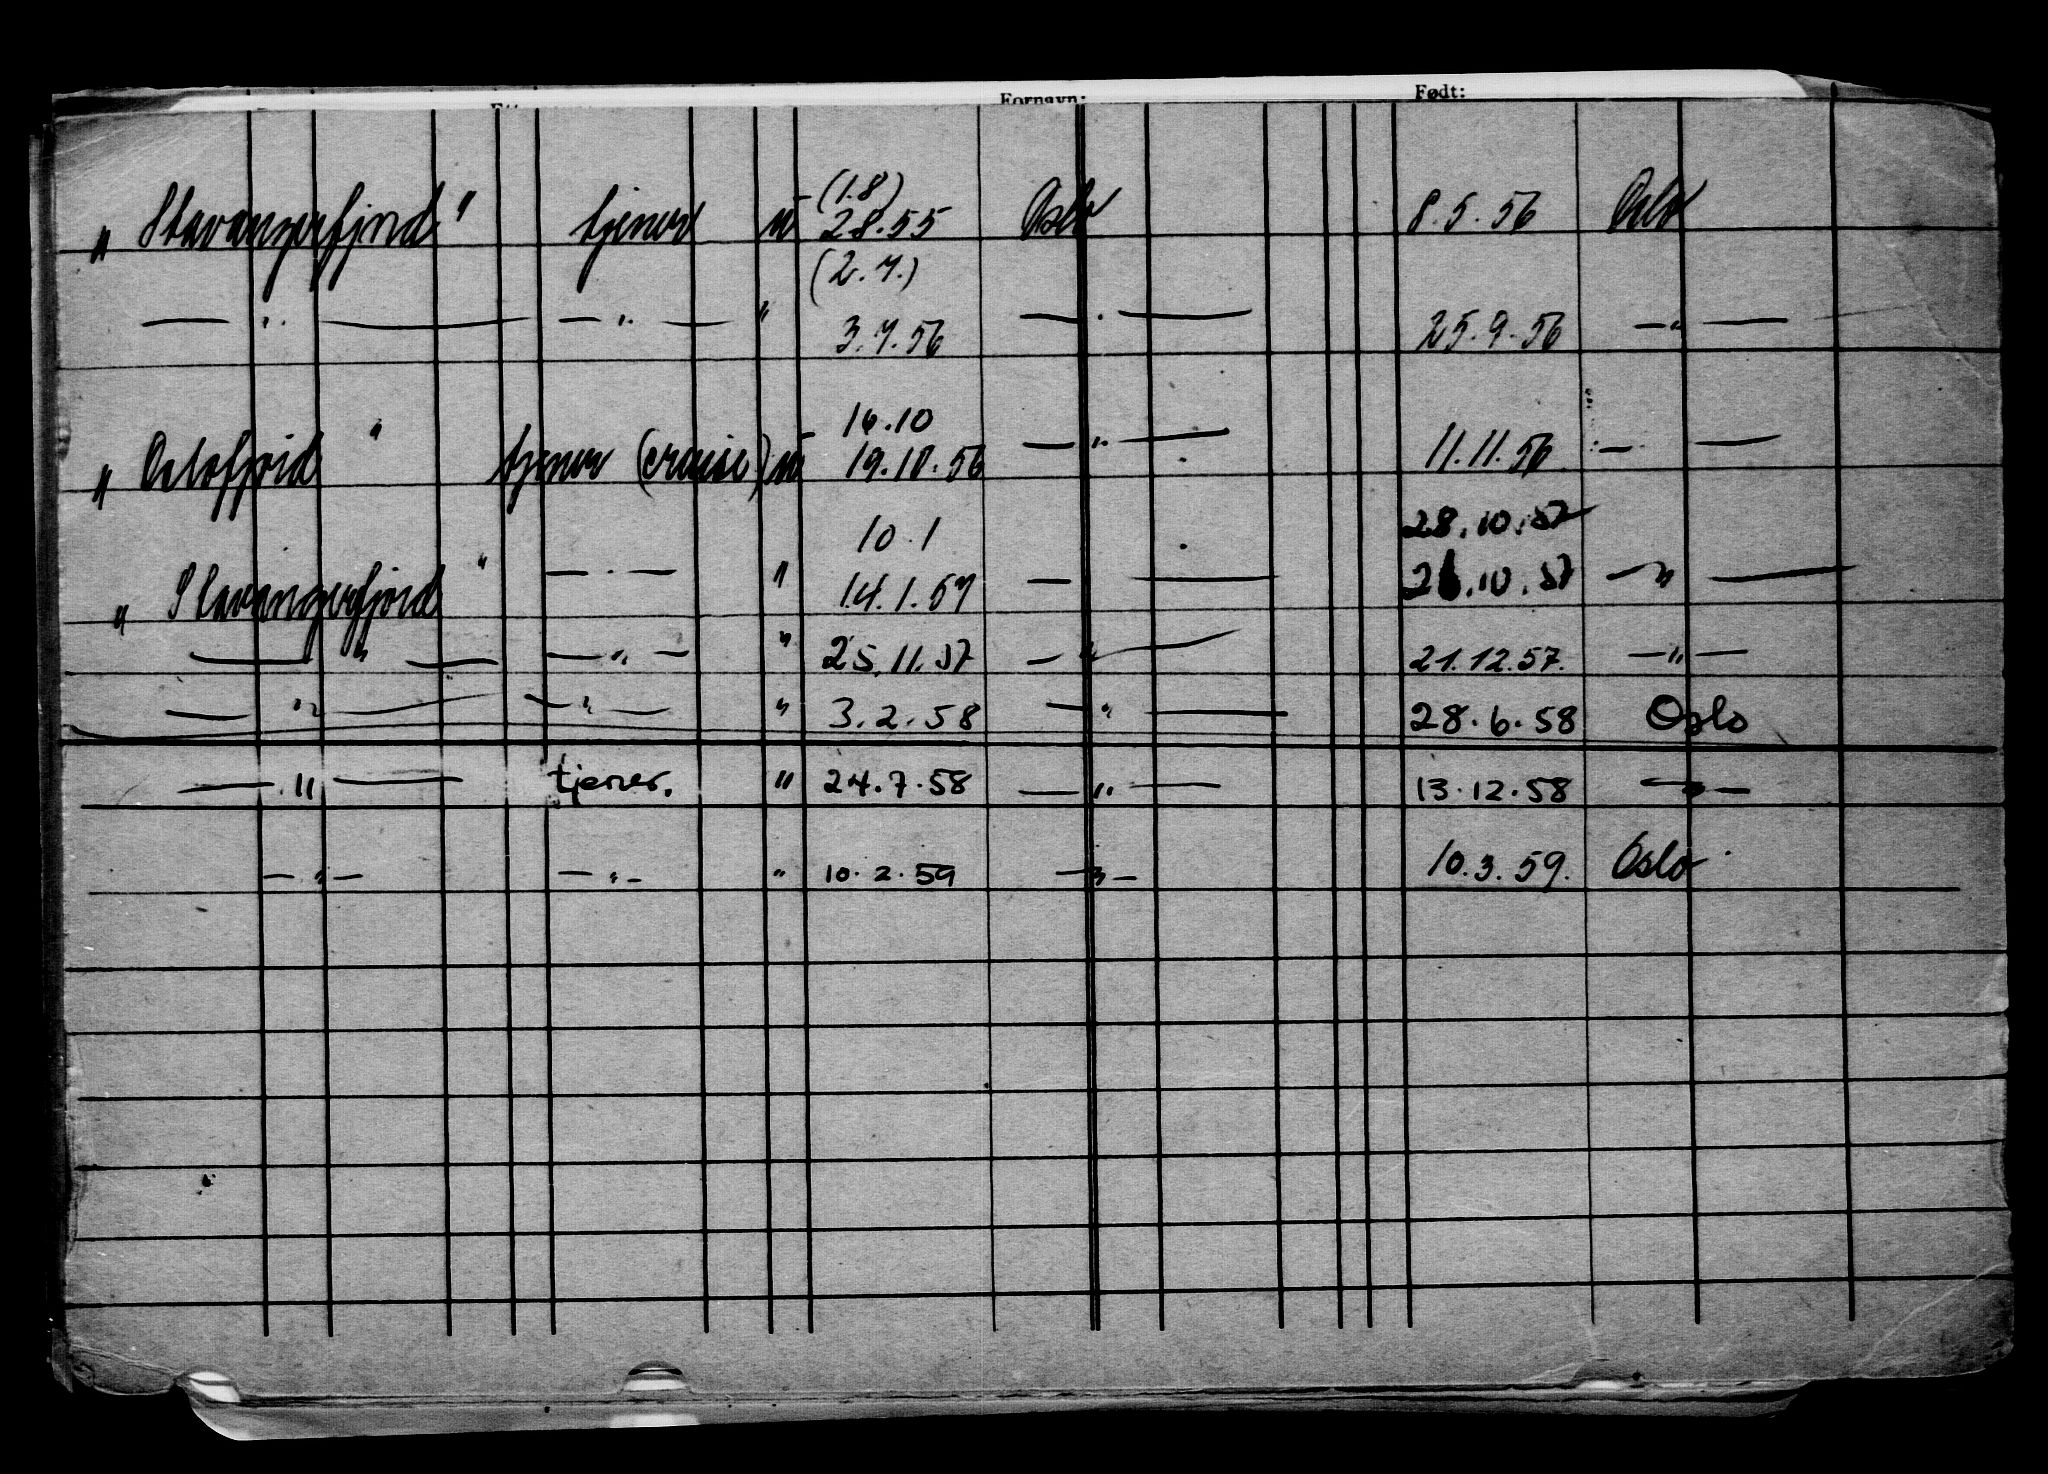 Fornavn: Født:
(1.8)
" Stavangerfjord " tjener 2.8.55 Oslo 8.5.56 Oslo
(2.7.)
— " — — " — " 3.7.56 — " — 25.9.56 — " —
16.10
" Oslofjord " tjener (cruise) 19.10.56 — " — 11.11.56 — —
10.1 28.10.57
" Stavangerfjord " — " — " 14.1.57 — — 26.10.57 — " —
— " — — " — " 25.11.57 — " — 21.12.57. — " —
— " — — " — " 3.2.58 — " — 28.6.58 Oslo
— " — tjener. " 24.7.58 — " — 13.12.58 — " —
— " — — " — " 10.2.59 — " — 10.3.59. Oslo